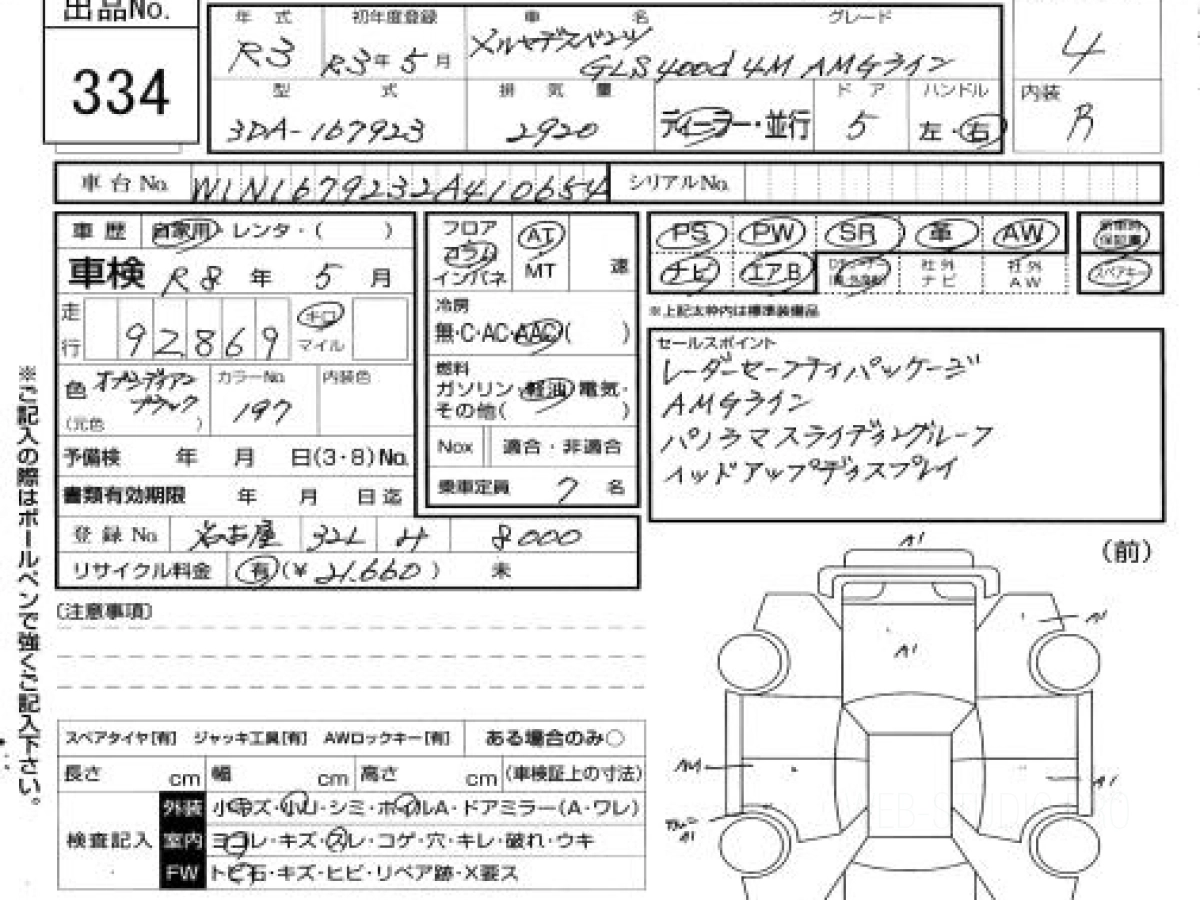 出品No.
334
年式 初年度登録 車名 グレード
R3 R3年5月 メルセデスベンツ
GLS400d 4M AMGライン
型式 排気量 ドア ハンドル
3DA-167923 2920 ディーラー・並行 5 左・右
4
内装
R
車台No. W1N1679232A410654 シリアルNo.
車歴 自家用・レンタ・( )
車検 R8年5月
走行 92,869 キロ マイル
色 オブシディアンブラック カラーNo. 197 内装色
(元色 )
予備検 年 月 日(3・8)No.
書類有効期限 年 月 日迄
登録No. 名古屋 32L 8000
リサイクル料金 有(¥21,660) 未
フロア コラム インパネ AT MT 速
冷房
無・C・AC・AAC( )
燃料
ガソリン・軽油・電気・
その他( )
Nox 適合・非適合
乗車定員 7名
PS PW SR 革 AW 新車時保証書
ナビ エアB 社外ナビ 社外AW スペアキー
※上記太枠内は標準装備品
セールスポイント
レーダーセーフティパッケージ
AMGライン
パノラマスライディングルーフ
ヘッドアップディスプレイ
※ご記入の際はボールペンで強くご記入下さい。
(注意事項)
スペアタイヤ[有] ジャッキ工具[有] AWロックキー[有] ある場合のみ○
長さ cm 幅 cm 高さ cm (車検証上の寸法)
検査記入
外装 小キズ・小U・シミ・ホイルA・ドアミラー(A・ワレ)
室内 ヨゴレ・キズ・スレ・コゲ・穴・キレ・破れ・ウキ
FW トビ石・キズ・ヒビ・リペア跡・X要ス
(前)
A1
A1
A1
A1
A1